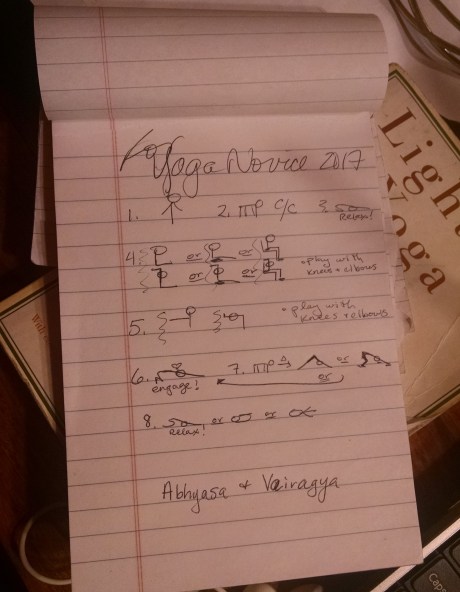 for
Yoga Novice 2017
1. 2. MP c/c 3. Relax!
4. or or
or or
• play with
knees + elbows
5.
• play with
knees + elbows
6. engage! 7. MP or
or
8. or or
Relax!
Abhyasa + Vairagya
Light
Yoga
Caps